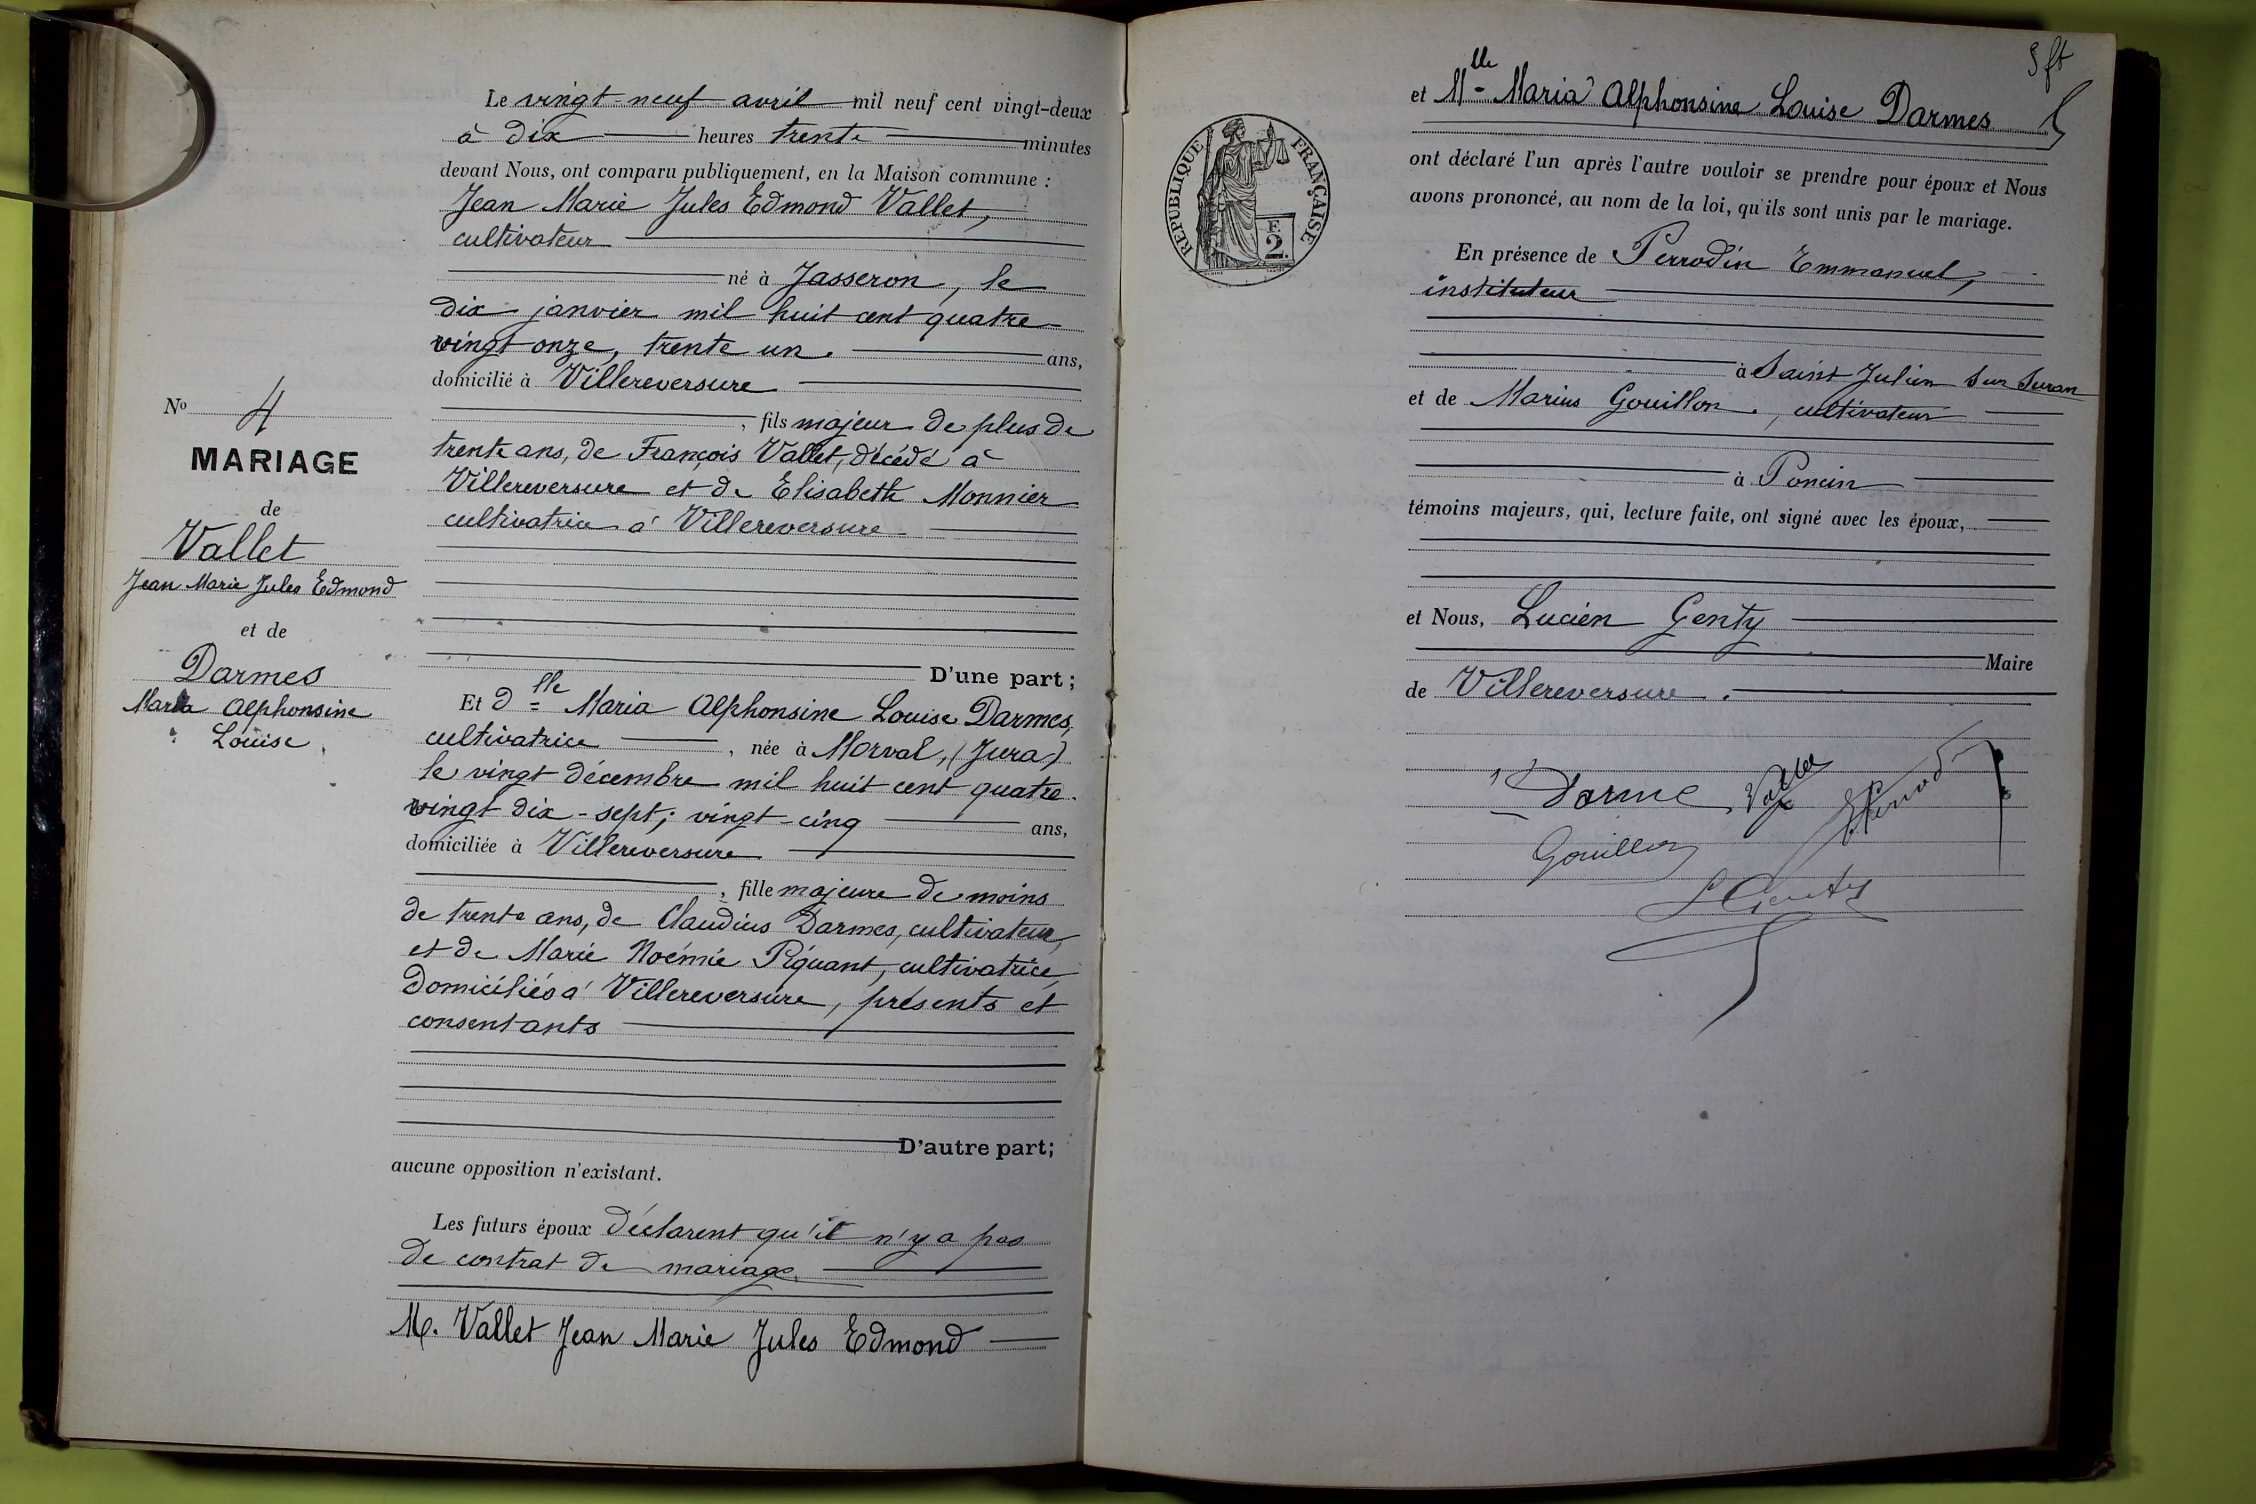 Le vingt-neuf avril mil neuf cent vingt-deux
à dix heures trente minutes
devant Nous, ont comparu publiquement, en la Maison commune :
Jean Marie Jules Edmond Vallet,
cultivateur
né à Jasseron, le
dix janvier mil huit cent quatre-
vingt onze, trente un. ans,
domicilié à Villereversure
, fils majeur de plus de
trente ans, de François Vallet, décédé à
Villereversure et de Elisabeth Monnier
cultivatrice à Villereversure
D'une part ;
Et Dlle Maria Alphonsine Louise Darmes,
cultivatrice , née à Morval, (Jura)
le vingt décembre mil huit cent quatre-
vingt dix-sept; vingt-cinq ans,
domiciliée à Villereversure
, fille majeure de moins
de trente ans, de Claudius Darmes, cultivateur,
et de Marie Noémie Piquant, cultivatrice,
domiciliés à Villereversure, présents et
consentants
D'autre part;
aucune opposition n'existant.
Les futurs époux déclarent qu'il n'y a pas
de contrat de mariage.
M. Vallet Jean Marie Jules Edmond
No 4
MARIAGE
de
Vallet
Jean Marie Jules Edmond
et de
Darmes
Maria Alphonsine
Louise
et Mlle Maria Alphonsine Louise Darmes
ont déclaré l'un après l'autre vouloir se prendre pour époux et Nous
avons prononcé, au nom de la loi, qu'ils sont unis par le mariage.
En présence de Perrodin Emmanuel,
instituteur
à Saint Julien sur Suran
et de Marius Gouillon, cultivateur
à Poncin
témoins majeurs, qui, lecture faite, ont signé avec les époux,
et Nous, Lucien Genty
Maire
de Villereversure.
Darme Vallet
Gouillon
L Genty
RÉPUBLIQUE FRANÇAISE
F.
2.